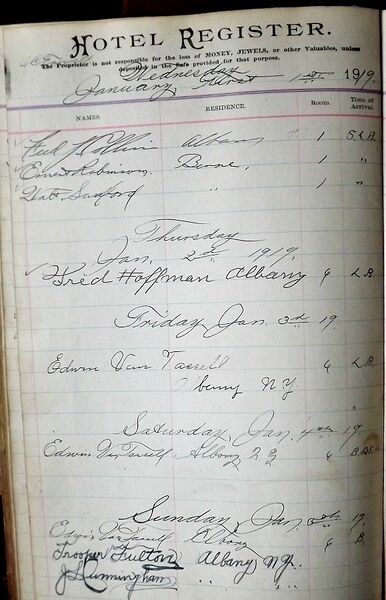 HOTEL REGISTER.
The Proprietor is not responsible for the loss of MONEY, JEWELS, or other Valuables, unless
deposited in the Safe provided for that purpose.
Wednesday
January First 1st 1919.
NAMES. RESIDENCE. ROOM. TIME OF ARRIVAL.
Fred Albany 1 S.L.B.
Ernest Robinson Berne, 1 "
Sanford " 1 "
Thursday
Jan. 2nd 1919.
Fred Hoffman Albany 6 L.B.
Friday Jan. 3rd 19.
Edwin Van Tassell 6 L.B.
Albany N.Y.
Saturday, Jan. 4th 19.
Edwin Van Tassell Albany 6
Sunday, Jan. 19.
Edwin Van Tassell Albany 6 B.
Trooper Fulton Albany N.Y.
J Cunningham " "